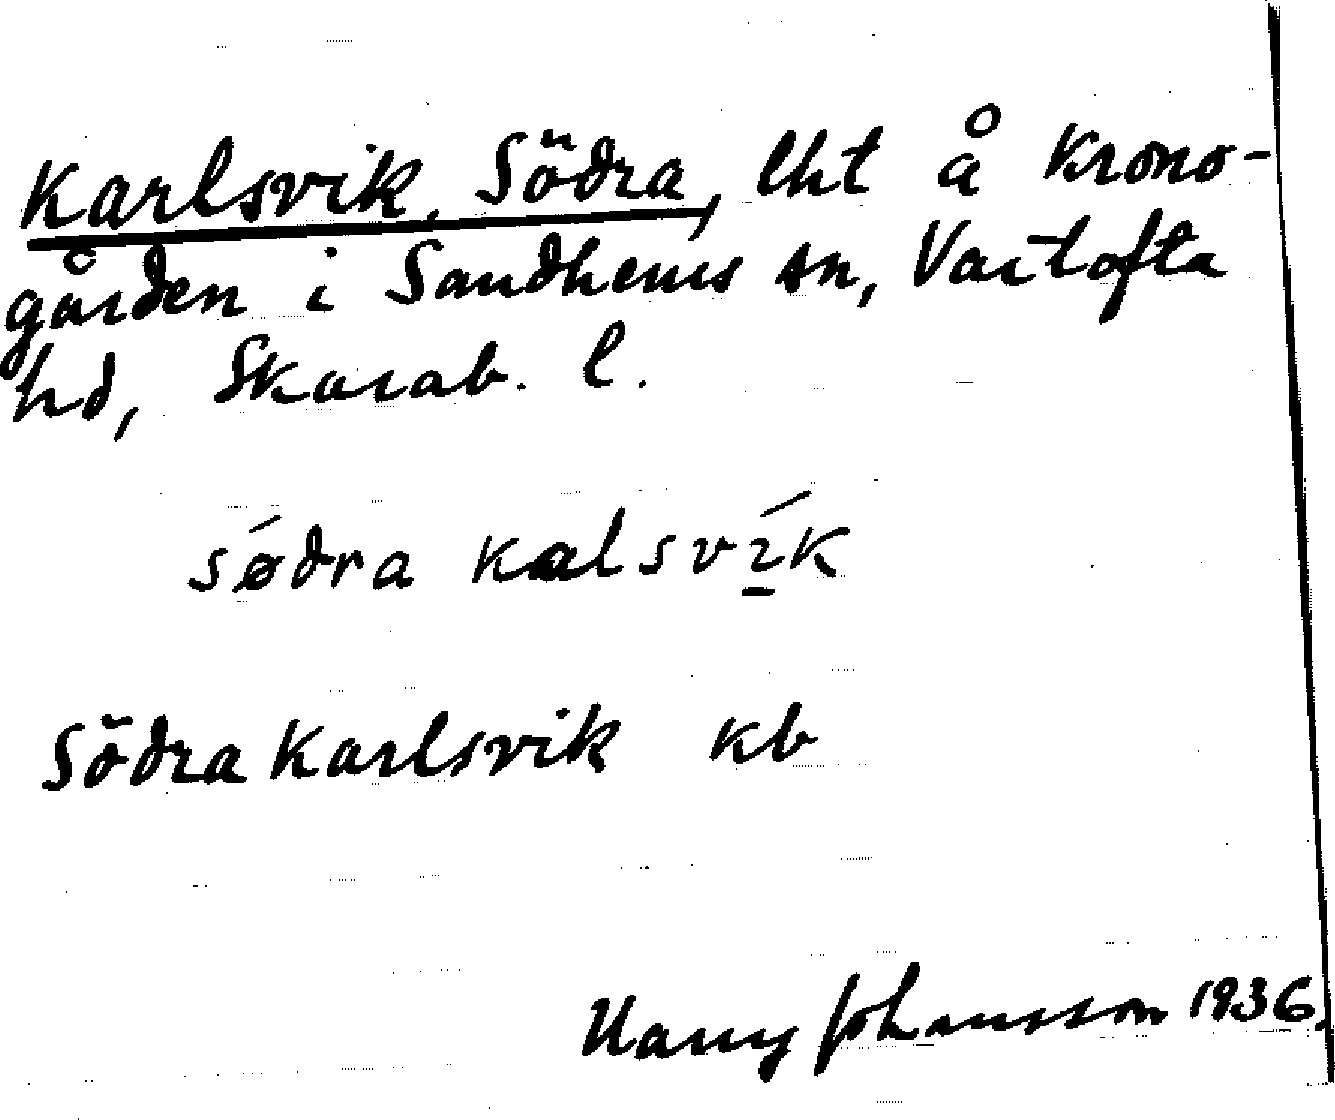 Karlsvik, Södra, lht å Krono-
gården i Sandhems sn, Vartofta
hd, Skarab. l.
sǿdra kalsvík
Södra Karlsvik kb
Harry Johansson 1936.